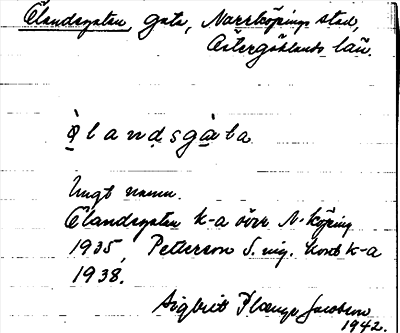 Ölandsgatan gata, Norrköpings stad,
Östergötlands län.
ö̀landsgàta
Ungt namn.
Ölandsgatan k-a över N-köping
1935, Petterson S. ing. k-a
1938.
Sigbrit Plænge Jacobson
1942.